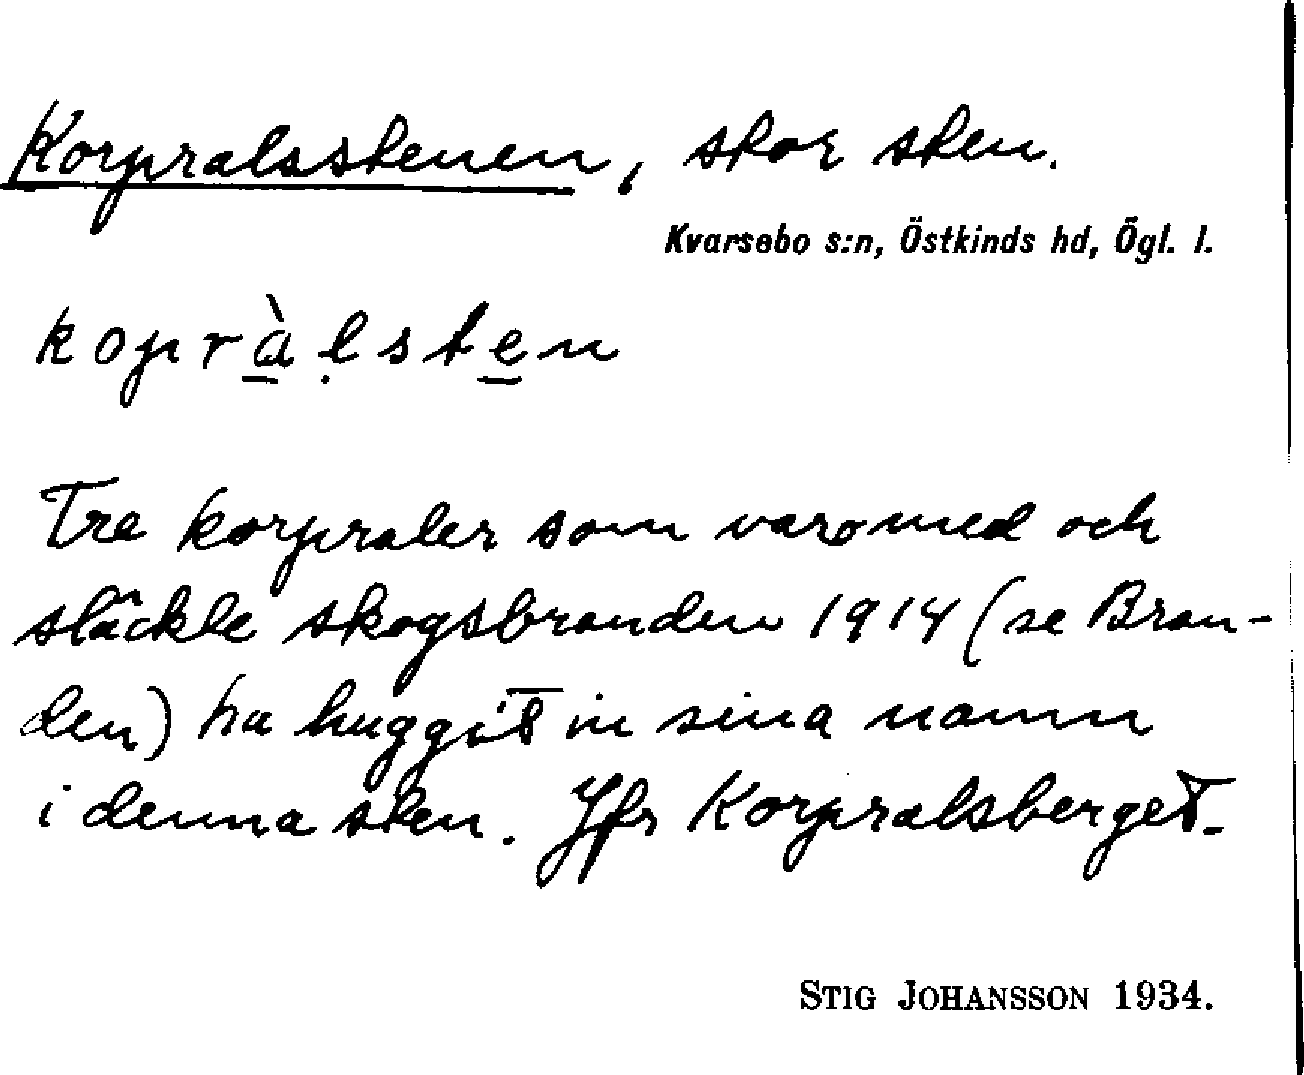 Korpralsstenen, stor sten.
Kvarsebo s:n, Östkinds hd, Ögl. l.
kopràḷsten
Tre korpraler som varo med och
släckte skogsbranden 1914 (se Bran-
den) ha huggit in sina namn
i denna sten. Jfr Korpralsberget.
STIG JOHANSSON 1934.